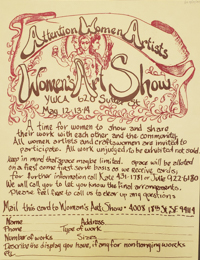 Attention Women Artists
Women's Art Show
YWCA 620 Sutter St
May 12, 13, 14
A time for women to show and share
their work with each other and the community.
All women artists and craftswomen are invited to
participate. All work unjudged to be exhibited not sold.
keep in mind that space may be limited. space will be allotted
on a first come first serve basis as we receive cards;
for further information call Kate 431-1781 or Julie 922-6180
We will call you to let you know the final arrangements.
Please feel free to call us to clear up any questions
Mail this card to Women's Art Show - 4003 18th St. SF 94114
Name Address
Phone Type of work
Number of works Sizes
Describe the display you have, if any for non hanging works
etc.